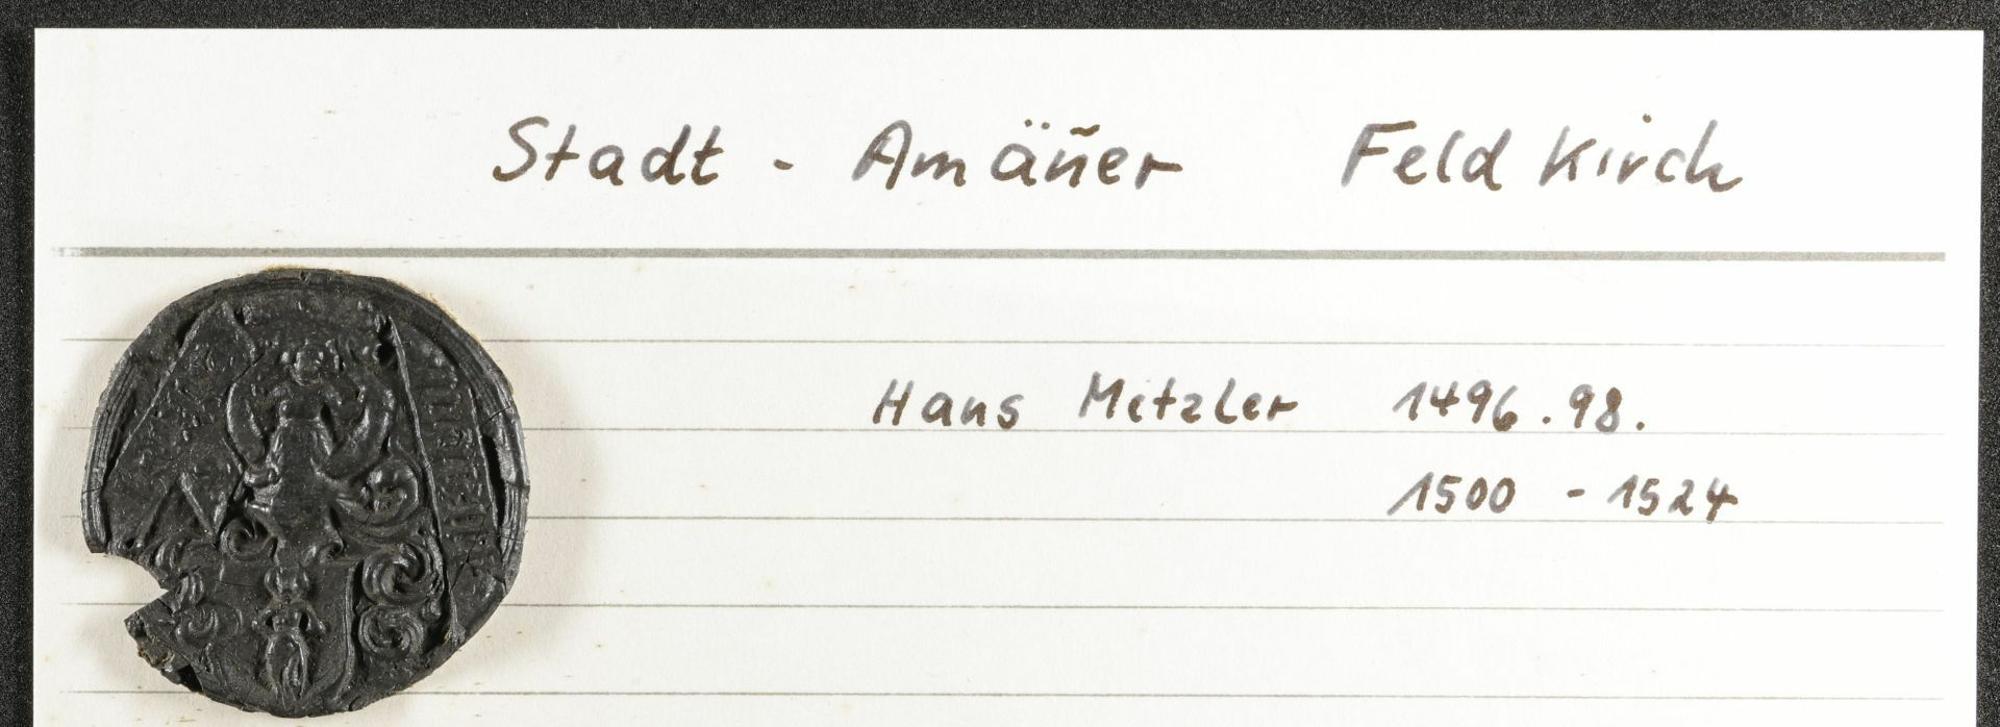 Stadt - Amäñer Feldkirch
Hans Metzler 1496.98.
1500 - 1524